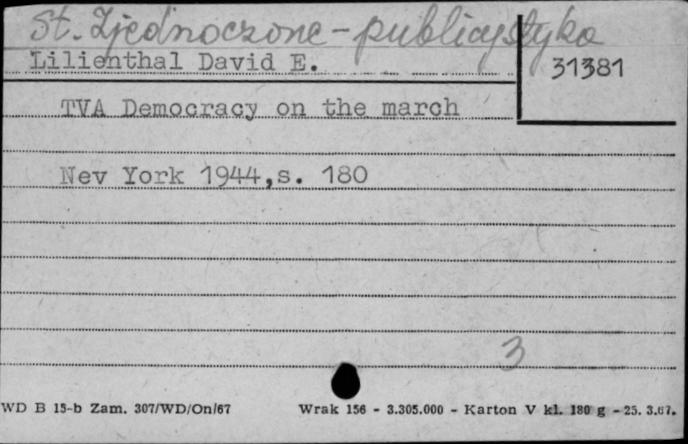 St. Zjednoczone - publicystyka
Lilienthal David E.
31381
TVA Democracy on the march
Nev York 1944,s. 180
3
WD B 15-b Zam. 307/WD/On/67
Wrak 156 - 3.305.000 - Karton V kl. 180 g - 25. 3.67.